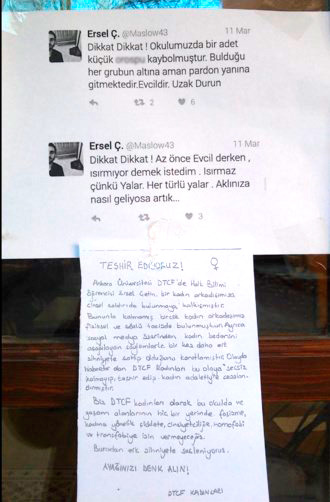 Ersel Ç. @Maslow43 11 Mar
Dikkat Dikkat ! Okulumuzda bir adet
küçük kaybolmuştur. Bulduğu
her grubun altına aman pardon yanına
gitmektedir.Evcildir. Uzak Durun
2 6
Ersel Ç. @Maslow43 11 Mar
Dikkat Dikkat ! Az önce Evcil derken ,
ısırmıyor demek istedim . Isırmaz
çünkü Yalar. Her türlü yalar . Aklınıza
nasıl geliyosa artık...
3
TEŞHİR EDİYORUZ! ♀
Ankara Üniversitesi DTCF'de Halk Bilimi
öğrencisi Ersel Çetin, bir kadın arkadaşımıza
cinsel saldırıda bulunmaya kalkışmıştır.
Bununla kalmamış birçok kadın arkadaşımıza
fiziksel ve sözlü tacizde bulunmuştur. Ayrıca
sosyal medya üzerinden kadın bedenini
aşağılayan söylemlerle bir kez daha erk
zihniyete sahip olduğunu kanıtlamıştır. Olaydan
haberdar olan DTCF Kadınları bu olaya sessiz
kalmayıp, teşhir edip kadın adaletiyle cezalan-
dırmıştır.
Biz DTCF kadınları olarak bu okulda ve
yaşam alanlarının hiç bir yerinde faşizme,
kadına yönelik şiddete, cinsiyetçiliğe, homofobi
ve transfobiye izin vermeyeceğiz.
Buradan erk zihniyete sesleniyoruz.
AYAĞINIZI DENK ALIN!
DTCF KADINLARI